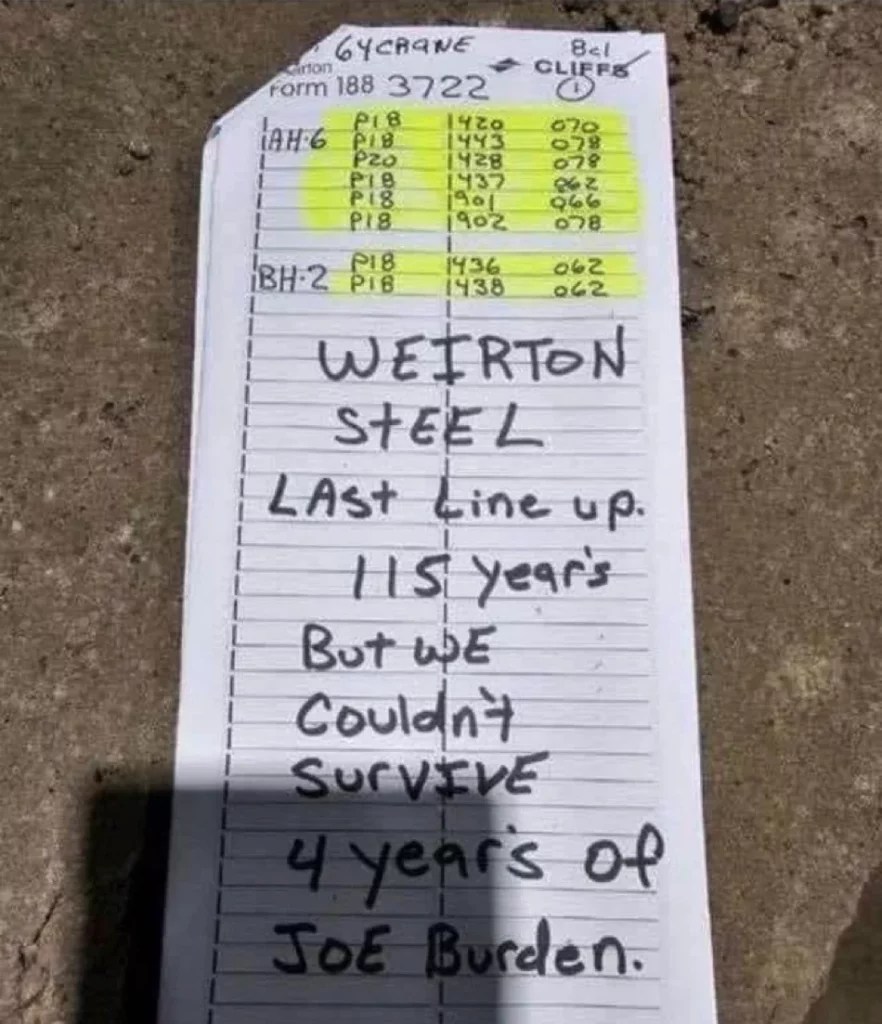 64CRANE 8cl
CLIFFS
Form 188 3722 1
P18 1420 070
AH-6 P18 1443 078
P20 1428 078
P18 1437 062
P18 1901 066
P18 1902 078
P18 1436 062
BH-2 P18 1438 062
WEIRTON
StEEL
LAst Line up.
115 year's
But WE
Couldn't
SurVIVE
4 year's of
JOE Burden.